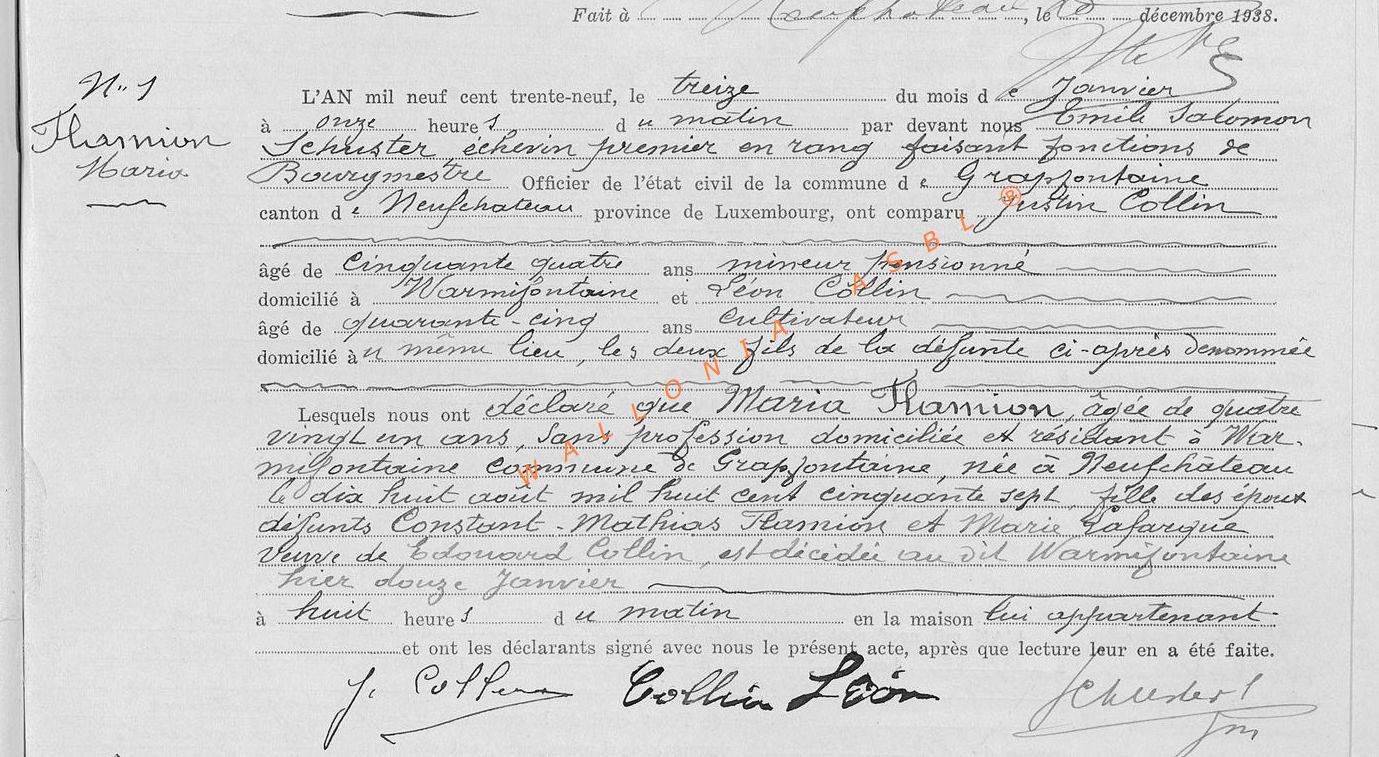 Fait à Neufchâteau, le décembre 1938.
N° 1
Hamion
Maria
L'AN mil neuf cent trente-neuf, le treize du mois de Janvier
à onze heures du matin par devant nous Emile Salomon
Schuster échevin premier en rang faisant fonctions de
Bourgmestre Officier de l'état civil de la commune de Grapfontaine
canton de Neufchateau province de Luxembourg, ont comparu Justin Collin
âgé de cinquante quatre ans mineur pensionné
domicilié à Warmifontaine et Léon Collin
âgé de quarante-cinq ans cultivateur
domicilié au même lieu, les deux fils de la défunte ci-après dénommée
Lesquels nous ont déclaré que Maria Hamion, âgée de quatre
vingt un ans, sans profession domiciliée et résidant à War-
mifontaine commune de Grapfontaine, née à Neufchâteau
le dix huit août mil huit cent cinquante sept, fille des époux
défunts Constant-Mathias Hamion et Marie Lafargue
veuve de Edouard Collin, est décédée au dit Warmifontaine
hier douze Janvier
à huit heures du matin en la maison lui appartenant
et ont les déclarants signé avec nous le présent acte, après que lecture leur en a été faite.
J. Collin Collin Léon Schuster
WALLONIA ASBL ®